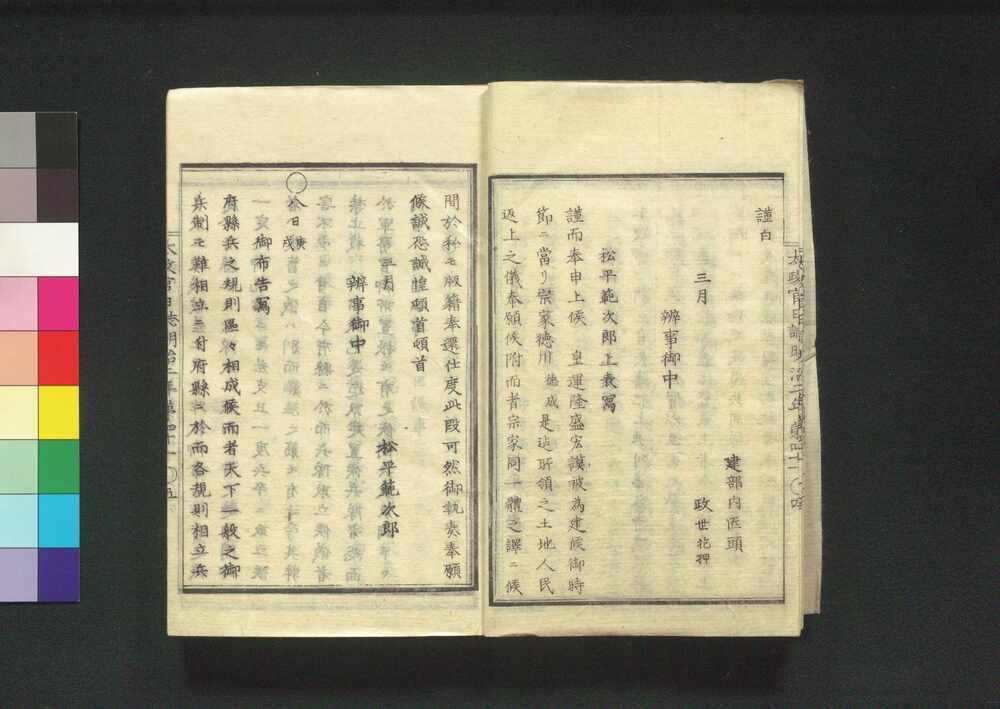 謹白
建部内匠頭
三月　政世花押
辨事御中
松平範次郎上表寫
謹而奉申上候　皇運隆盛宏謨被為建候御時
節ニ當リ宗家徳川慥成是迠所領之土地人民
返上之儀奉願候附而者宗家同一體之譯ニ候
間於私モ版籍奉還仕度此段可然御執奏奉願
候誠恐誠惶頓首頓首
松平範次郎
三月
辨事御中
○今日庚戌
御布告寫
府縣兵之規則區々相成候而者天下一般之御
兵制モ難相立ニ付府縣ニ於而各規則相立兵
太政官日誌明治二年第四十一　○五